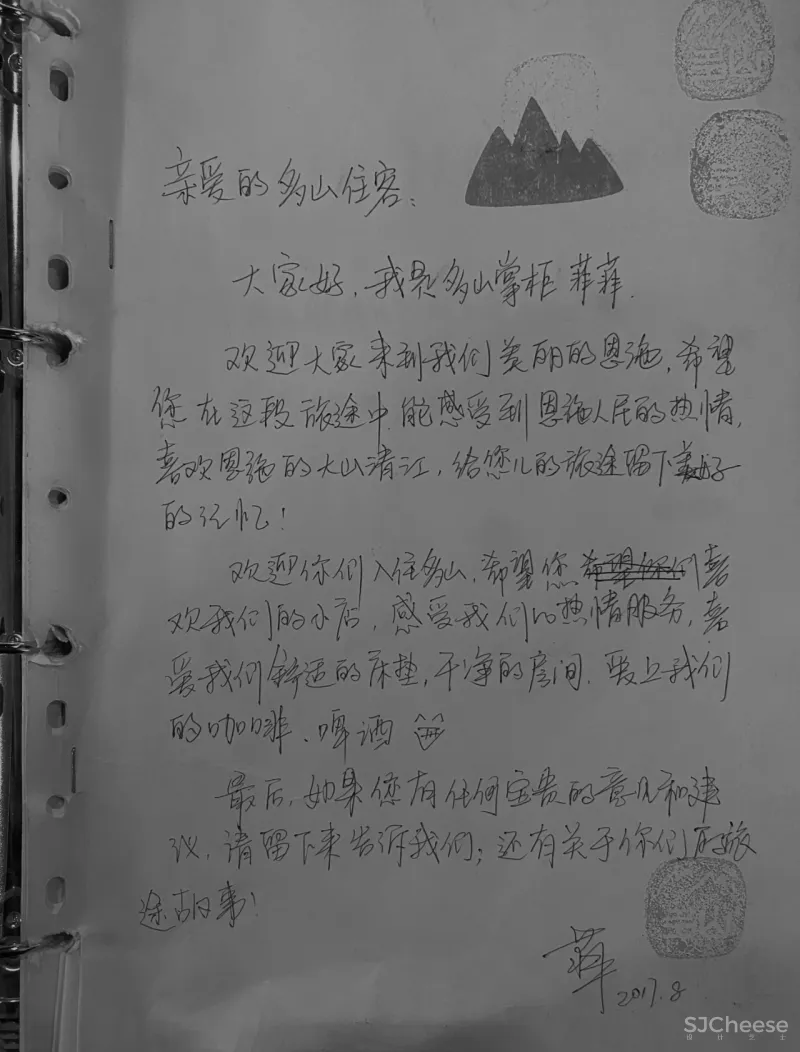 亲爱的多山住客：
大家好，我是多山掌柜菲菲.
欢迎大家来到我们美丽的恩施，希望
您在这段旅途中能感受到恩施人民的热情，
喜欢恩施的大山清江，给您儿的旅途留下美好
的记忆！
欢迎你们入住多山，希望您希望你们喜
欢我们的小店，感受我们的热情服务，喜
爱我们舒适的床垫，干净的房间、爱上我们
的咖啡、啤酒
最后，如果您有任何宝贵的意见和建
议，请留下来告诉我们；还有关于你们的旅
途故事！
菲 2017.8
SJCheese
设计芝士